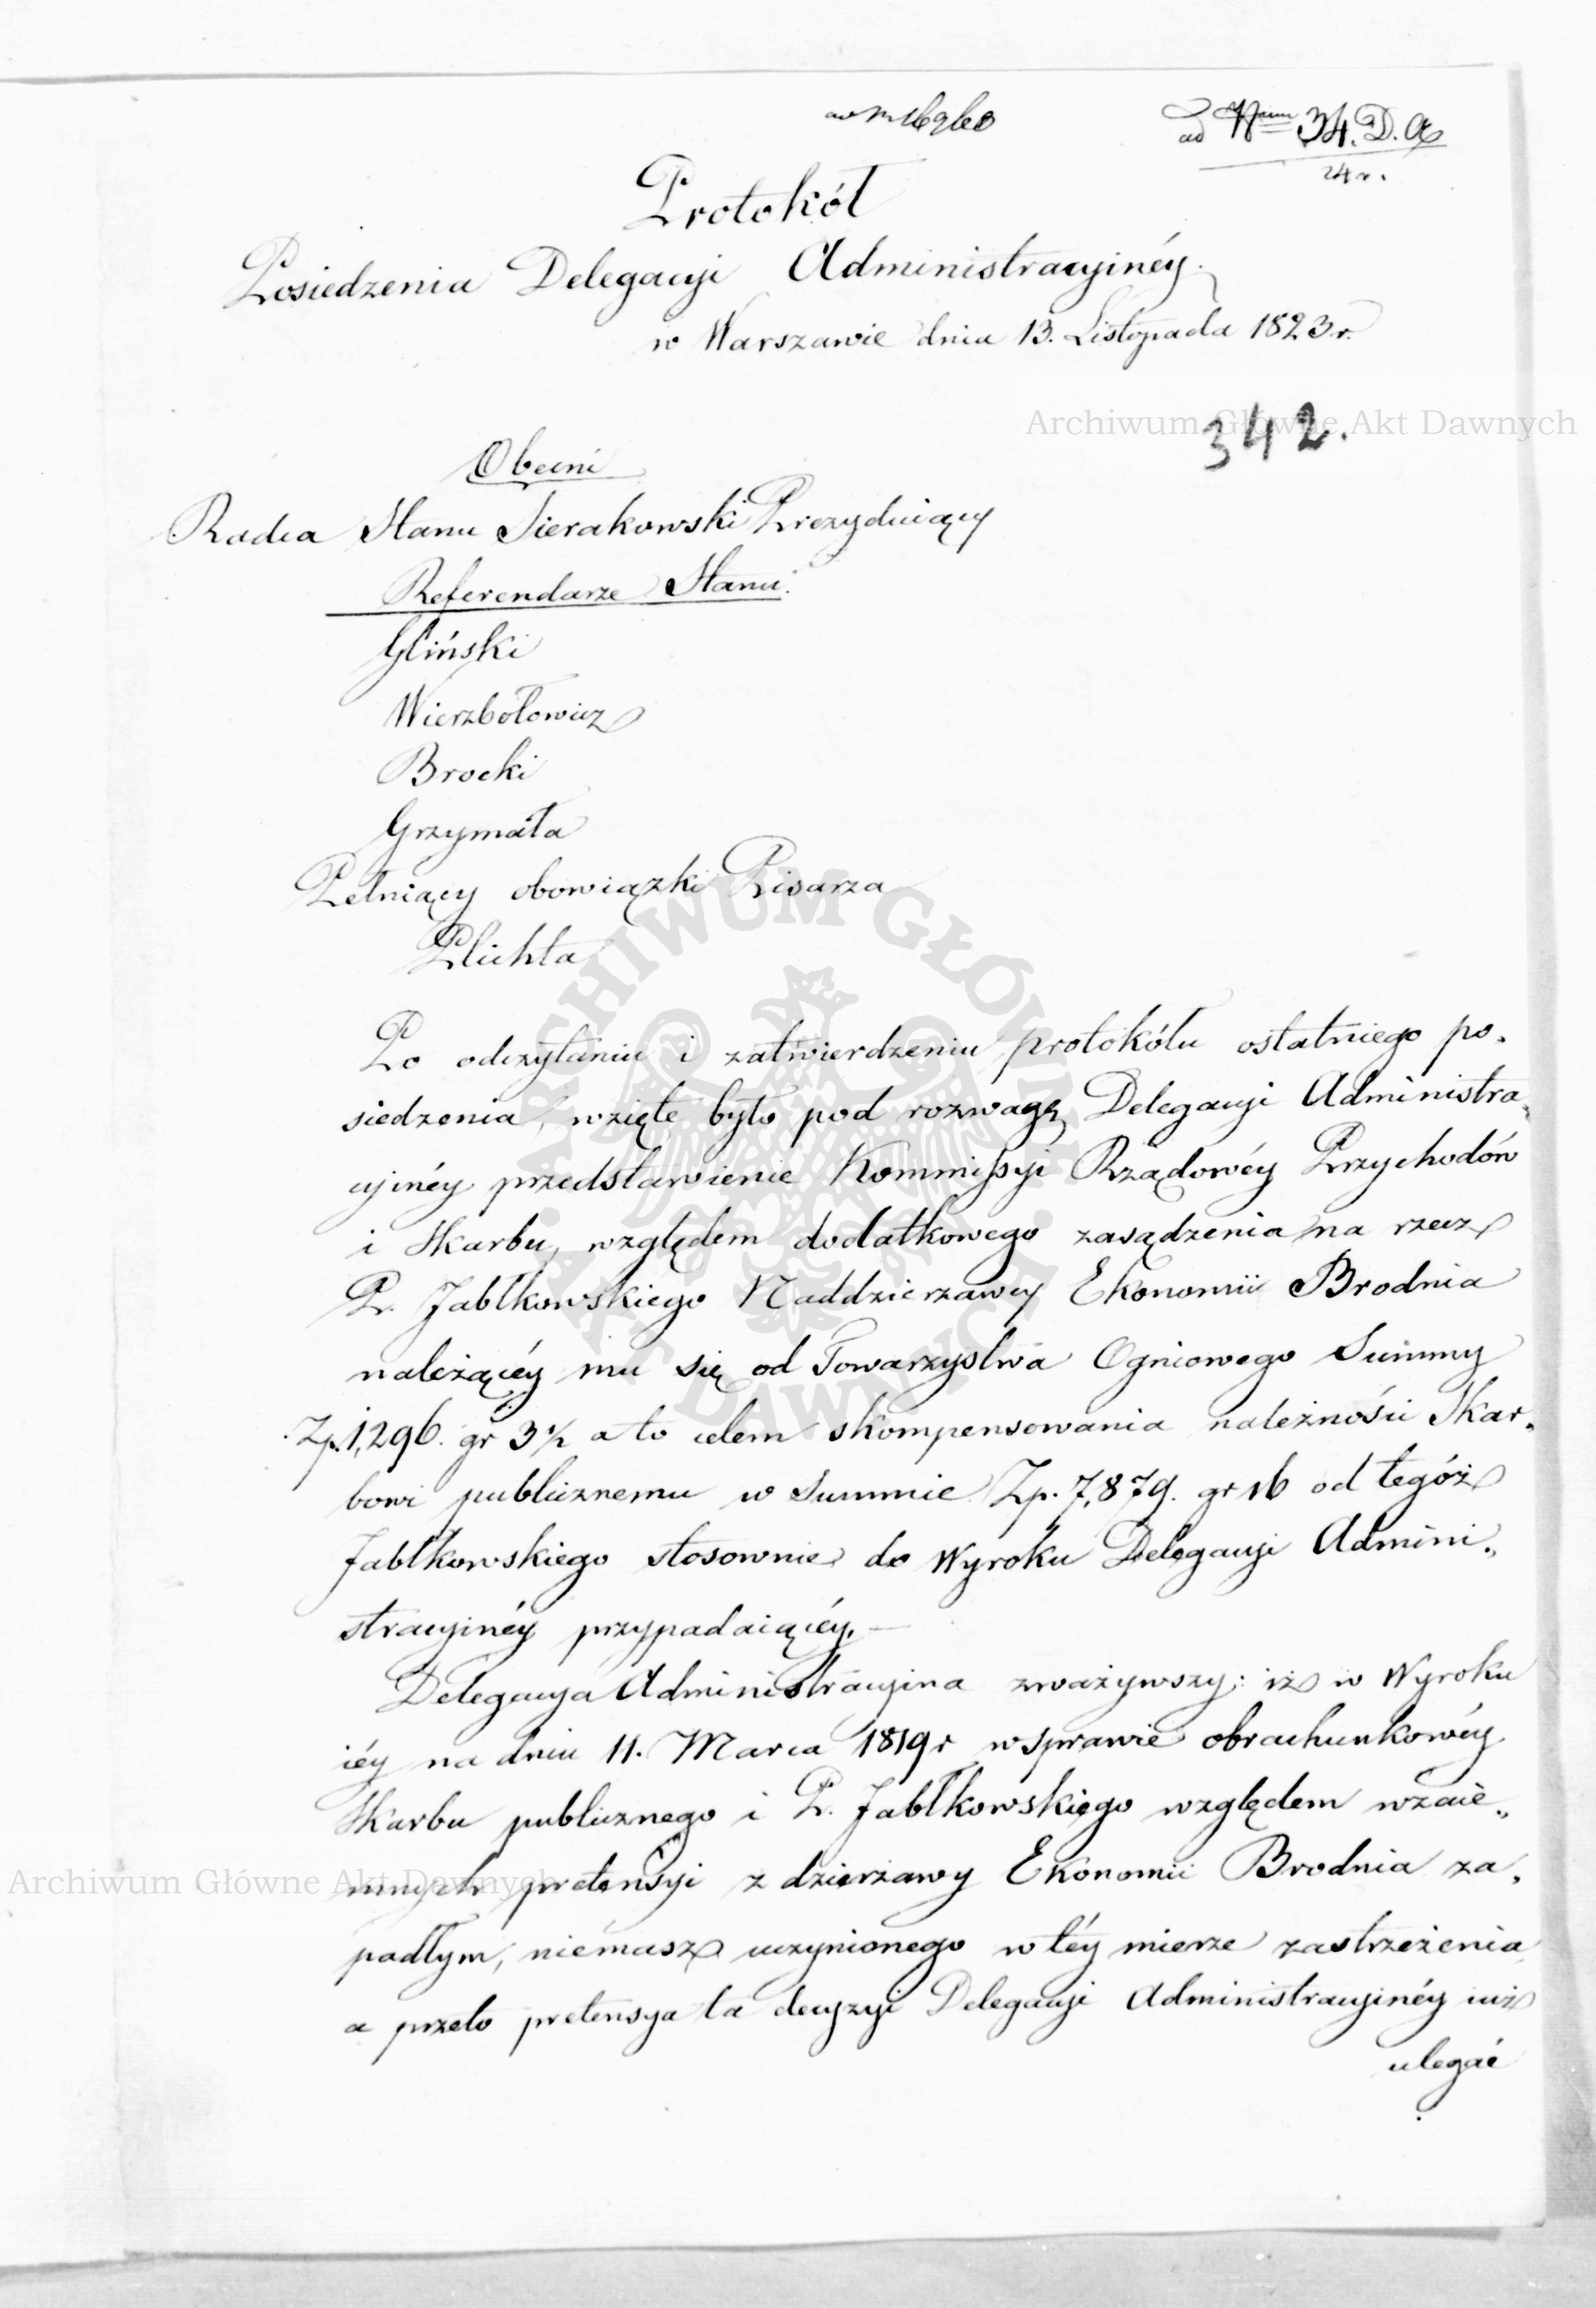 ad Num 34. D. A.
24 r.
Protokół
Posiedzenia Delegacyi Administracyinéy
w Warszawie dnia 13. Listopada 1823 r.
Archiwum Główne Akt Dawnych
342.
Obecni
Radca Stanu Sierakowski Prezyduiący
Referendarze Stanu.
Gliński
Wierzbołowicz
Brocki
Grzymała
Pełniący obowiązki Pisarza
Plichta
ARCHIWUM GŁÓWNE AKT DAWNYCH
Po odczytaniu i zatwierdzeniu protokółu ostatniego po„
siedzenia, wzięte było pod rozwagę Delegacyi Administra„
cyinéy przedstawienie Kommissyi Rządowéy Przychodów
i Skarbu, względem dodatkowego zasądzenia na rzecz
P. Jabłkowskiego Naddzierzawcy Ekonomii Brodnia
należącéy mu się od Towarzystwa Ogniowego Summy
Zp. 1,296. gr 3½ a to celem skompensowania należności Skar„
bowi publicznemu w Summie Zp. 7,879. gr 16 od tegóż
Jabłkowskiego stosownie do Wyroku Delegacyi Admini„
stracyinéy przypadaiącéy.—
Delegacya Administracyina zważywszy: iż w Wyroku
iéy na dniu 11. Marca 1819 r w sprawie obrachunkowéy
Skarbu publicznego i P. Jabłkowskiego względem wzaie„
mnych pretensyi z dzierżawy Ekonomii Brodnia za„
padłym, niemasz uczynionego w téy mierze zastrzeżenia
a przeto pretensya ta decyzyi Delegacyi Administracyinéy iuż
ulegać
Archiwum Główne Akt Dawnych